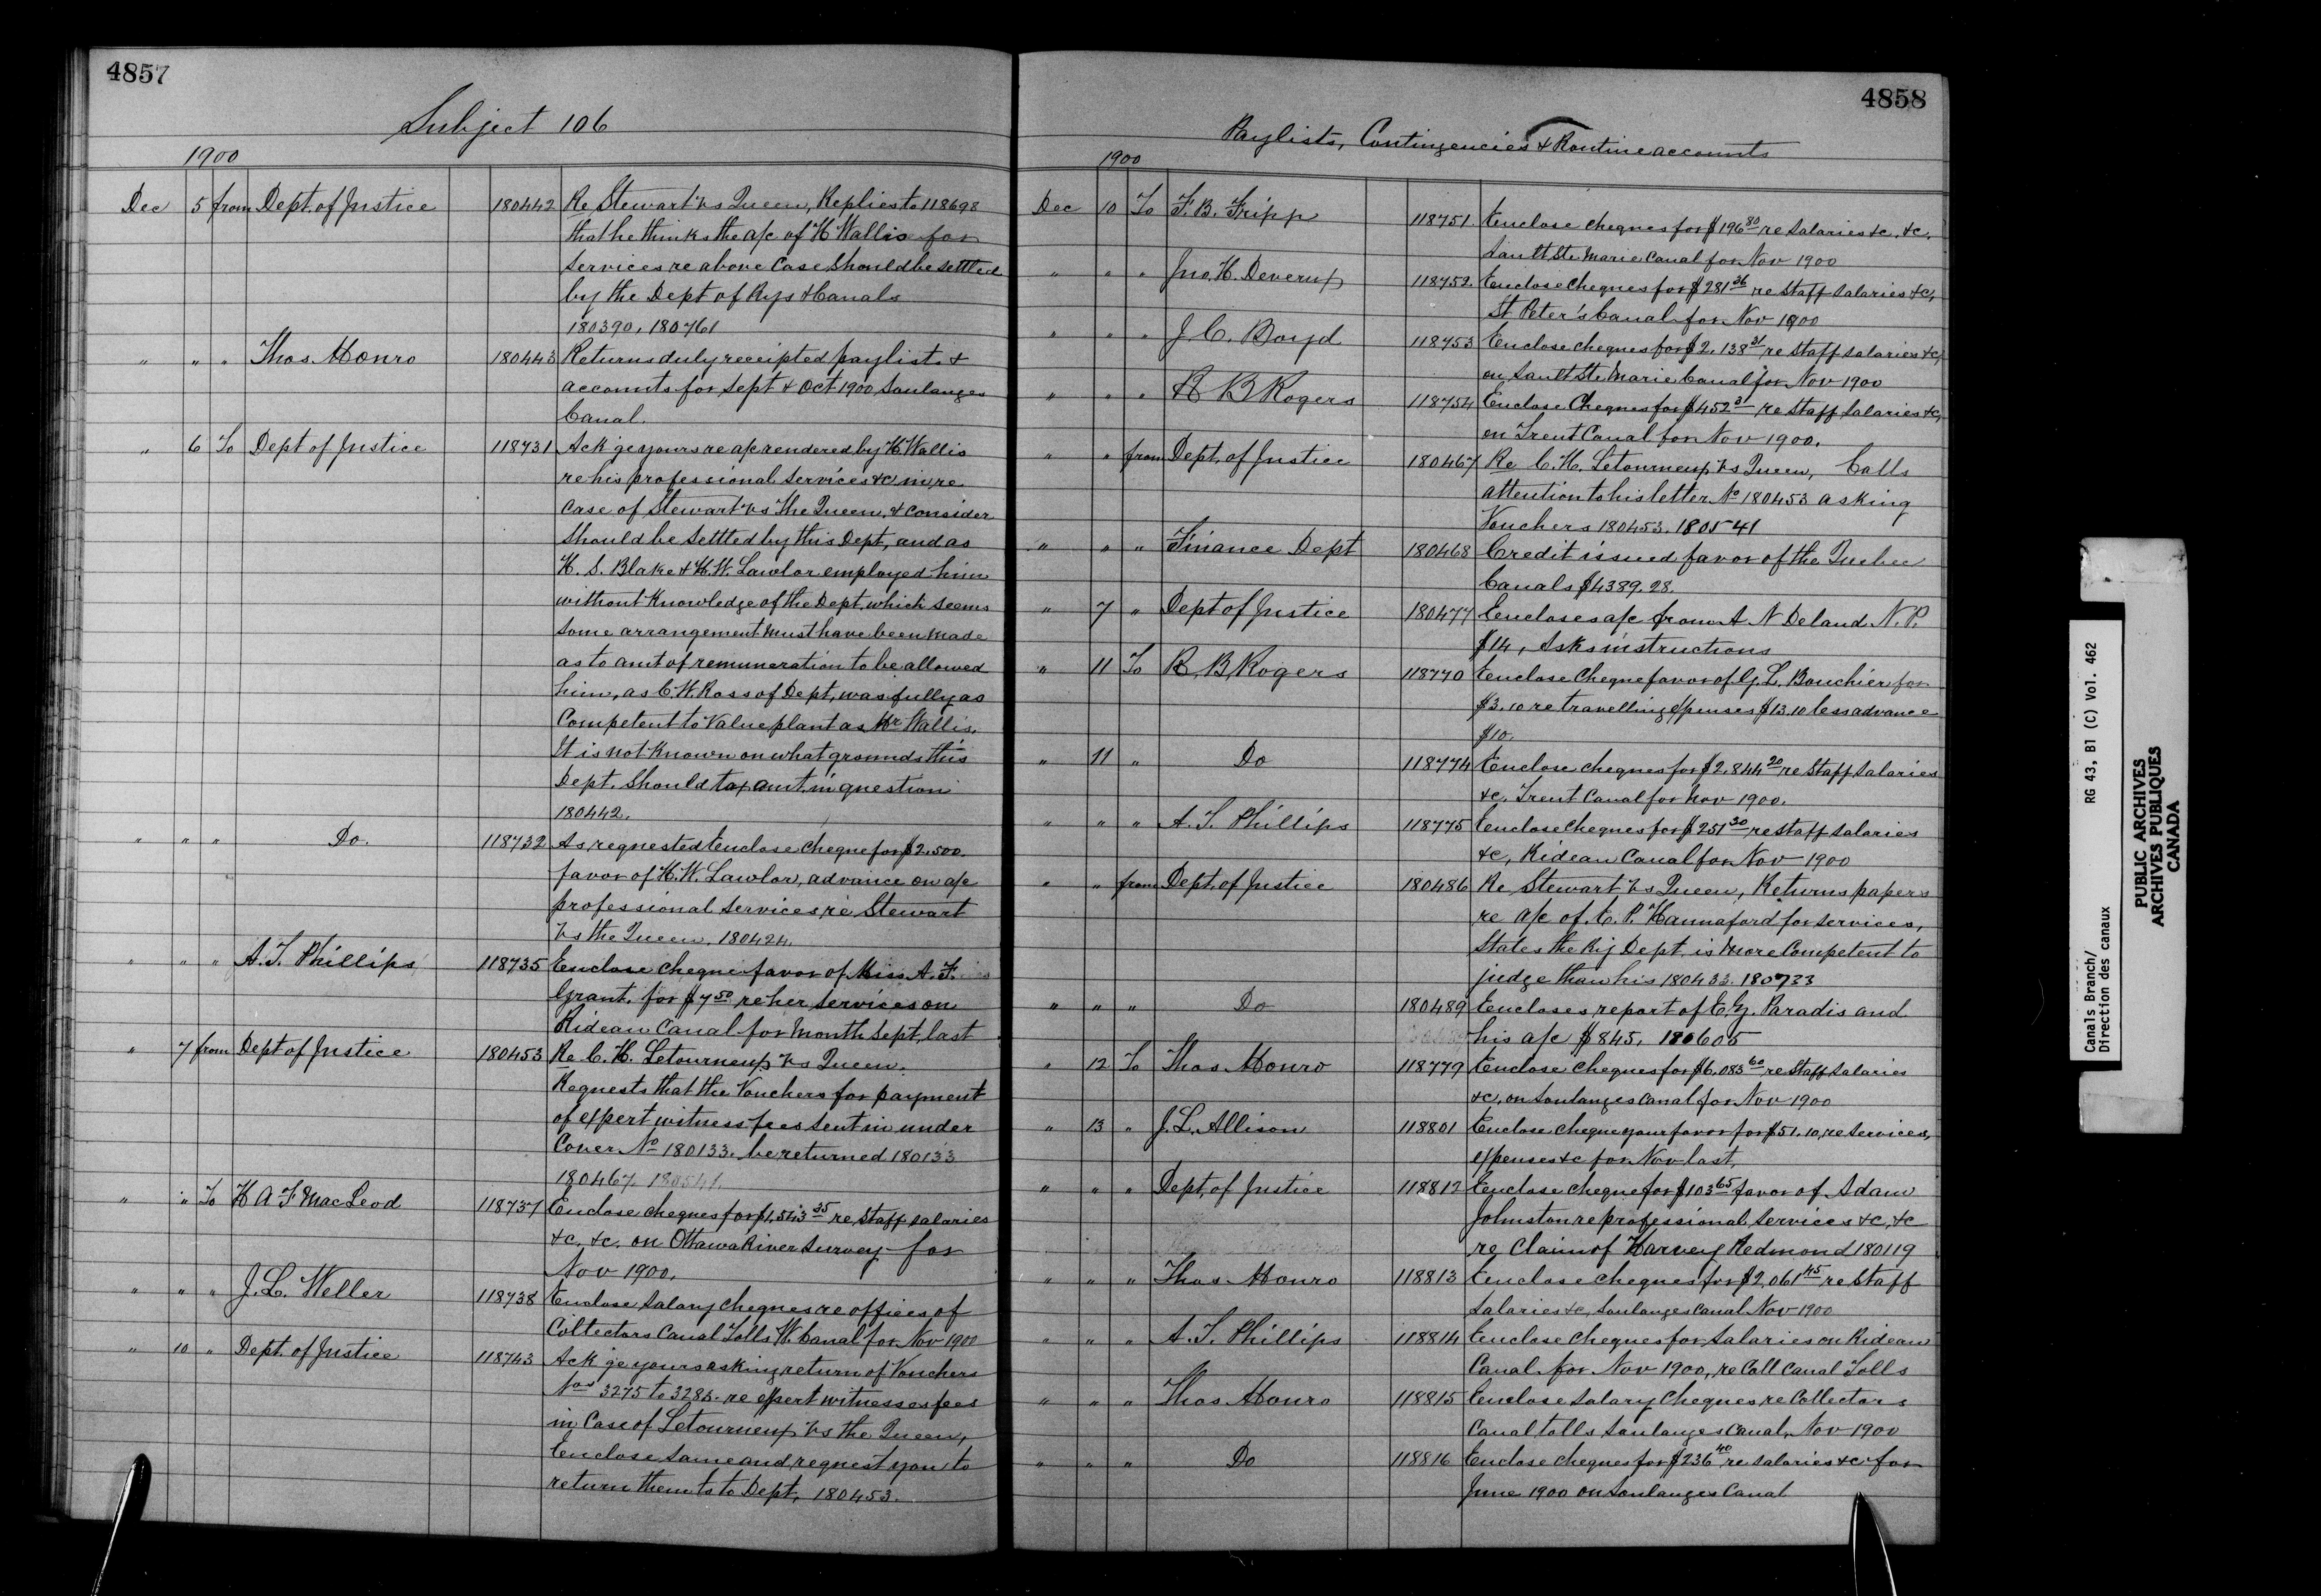 4857
Subject 106
1900
Dec 5 from Dept. of Justice 180442 Re Stewart vs Queen, Replies to 118698
that he thinks the a/c of H Wallis for
services re above case should be settled
by the Dept of Rys & Canals
180390, 180761
" " " Thos. Monro 180443 Returns duly receipted paylists &
accounts for Sept & Oct 1900 Soulanges
Canal.
" 6 To Dept of Justice 118731 Ack'ge yours re a/c rendered by H Wallis
re his professional services &c in re
case of Stewart vs The Queen, & consider
should be settled by this Dept, and as
H. S. Blake & H. W. Lawlor employed him
without knowledge of the Dept. which seems
some arrangement must have been made
as to amt of remuneration to be allowed
him, as C. W. Ross of Dept, was fully as
competent to value plant as Mr Wallis.
It is not known on what grounds this
Dept. should tax amt. in question
180442.
" " " Do. 118732 As requested Enclose cheque for $2,500.
favor of H. W. Lawlor, advance on a/c
professional services re Stewart
vs the Queen. 180424.
" " " A. T. Phillips 118735 Enclose cheque favor of Miss A. F.
Grant, for $7 50 re her services on
Rideau Canal for month Sept, last
" 7 from Dept of Justice 180453 Re C. H. Letourneux vs Queen.
Requests that the Vouchers for payment
of expert witness fees sent in under
Cover No 180133. be returned 180133
180467. 180541.
" " To H A F MacLeod 118737 Enclose cheques for $1,543 35 re staff salaries
&c. &c. on Ottawa River Survey for
Nov 1900.
" " " J. L. Weller 118738 Enclose salary cheques re offices of
Collectors Canal Tolls W. Canal for Nov 1900
" 10 " Dept. of Justice 118743 Ack'ge yours asking return of Vouchers
Nos 3275 to 3285. re expert witnesses fees
in Case of Letourneux vs the Queen,
Enclose same and request you to
return them to Dept, 180453.
4858
Paylists, Contingencies & Routine accounts
1900
Dec 10 To F. B. Fripp 118751. Enclose cheques for $196 80 re salaries &c. &c.
Sault Ste Marie Canal for Nov 1900
" " " Jno. H. Devereux 118752. Enclose cheques for $281 36 re staff salaries &c,
St Peter's Canal for Nov 1900
" " " J. C. Boyd 118753 Enclose cheques for $2,138 31 re staff salaries &c,
on Sault Ste Marie Canal for Nov 1900
" " " R B Rogers 118754 Enclose Cheques for $452 31 re staff salaries &c,
on Trent Canal for Nov 1900.
" " from Dept. of Justice 180467 Re C. H. Letourneux vs Queen, Calls
attention to his letter No 180453 asking
Vouchers 180453. 180541
" " " Finance Dept 180468 Credit issued favor of the Quebec
Canals $4389.28.
" 7 " Dept of Justice 180477 Encloses a/c from A N Deland N. P.
$14, Asks instructions
" 11 To R. B. Rogers 118770 Enclose Cheque favor of G. L. Bouchier for
$3.10 re travelling expenses $13.10 less advance
$10.
" 11 " Do 118774 Enclose cheques for $2,844 20 re staff salaries
&c. Trent Canal for Nov 1900.
" " " A. T. Phillips 118775 Enclose cheques for $251 30 re staff salaries
&c, Rideau Canal for Nov 1900
" " from Dept. of Justice 180486 Re Stewart vs Queen, Returns papers
re a/c of E. P. Hannaford for services,
States the Ry Dept. is more competent to
judge than his 180433. 180733
" " " Do 180489 Encloses report of E. G. Paradis and
his a/c $845, 180605
" 12 To Thos Monro 118779 Enclose cheques for $6,083 60 re staff salaries
&c, on Soulanges Canal for Nov 1900
" 13 " J. L. Allison 118801 Enclose cheque your favor for $51.10, re services,
expenses &c for Nov last,
" " " Dept, of Justice 118812 Enclose cheque for $103 65 favor of Adam
Johnston re professional services &c, &c
re claim of Harvey Redmond 180119
" " " Thos Monro 118813 Enclose cheques for $2,061 45 re staff
salaries &c, Soulanges Canal Nov 1900
" " " A. T. Phillips 118814 Enclose cheques for salaries on Rideau
Canal for Nov 1900, re Coll Canal Tolls
" " " Thos Monro 118815 Enclose salary cheques re Collectors
Canal tolls Soulanges Canal, Nov 1900
" " " Do 118816 Enclose cheques for $236 40 re salaries &c for
June 1900 on Soulanges Canal
Canals Branch/ RG 43, B1 (C) Vol. 462
Direction des canaux
PUBLIC ARCHIVES
ARCHIVES PUBLIQUES
CANADA